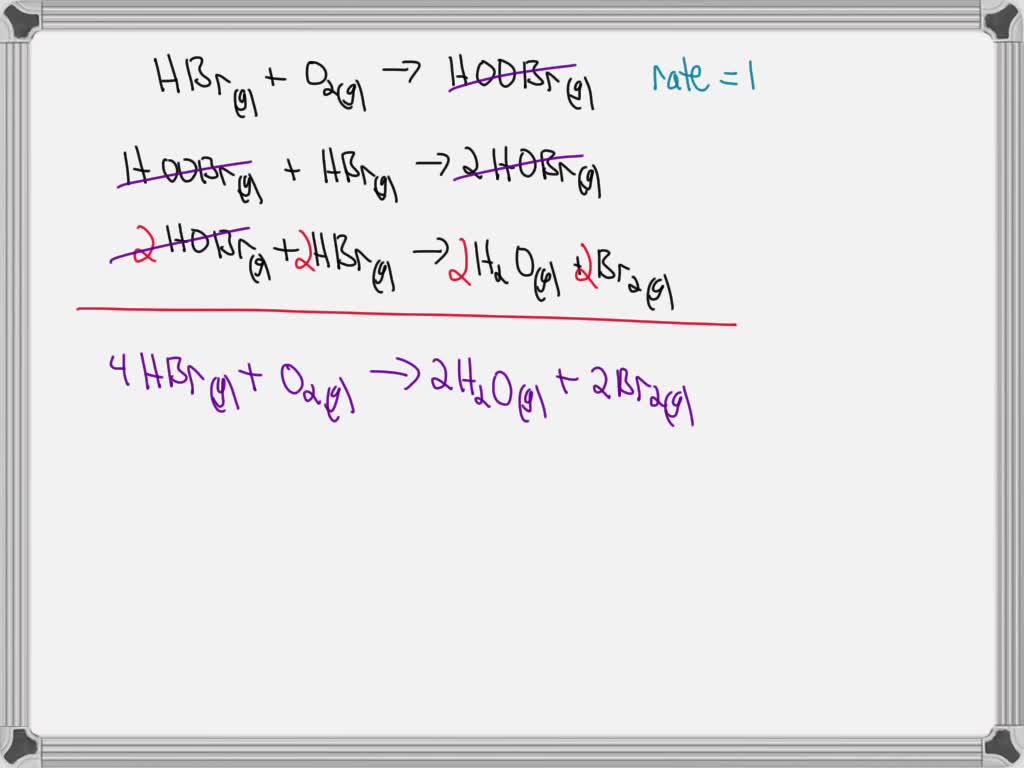 HBr(g) + O₂(g) → HOOBr(g) rate = 1
HOOBr(g) + HBr(g) → 2HOBr(g)
2HOBr(g) + 2HBr(g) → 2H₂O(g) + 2Br₂(g)
4HBr(g) + O₂(g) → 2H₂O(g) + 2Br₂(g)